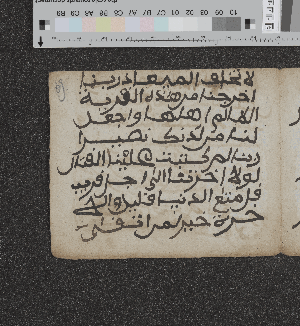 لا تخلف الميعاد ربنا
اخرجنا من هذه القرية
الظالم اهلها واجعل
لنا من لدنك نصيرا
ربنا لم كتبت علينا القتال
لولا اخرتنا الى اجل قريب
قل متع الدنيا قليل والا
خرة خير لمن اتقى